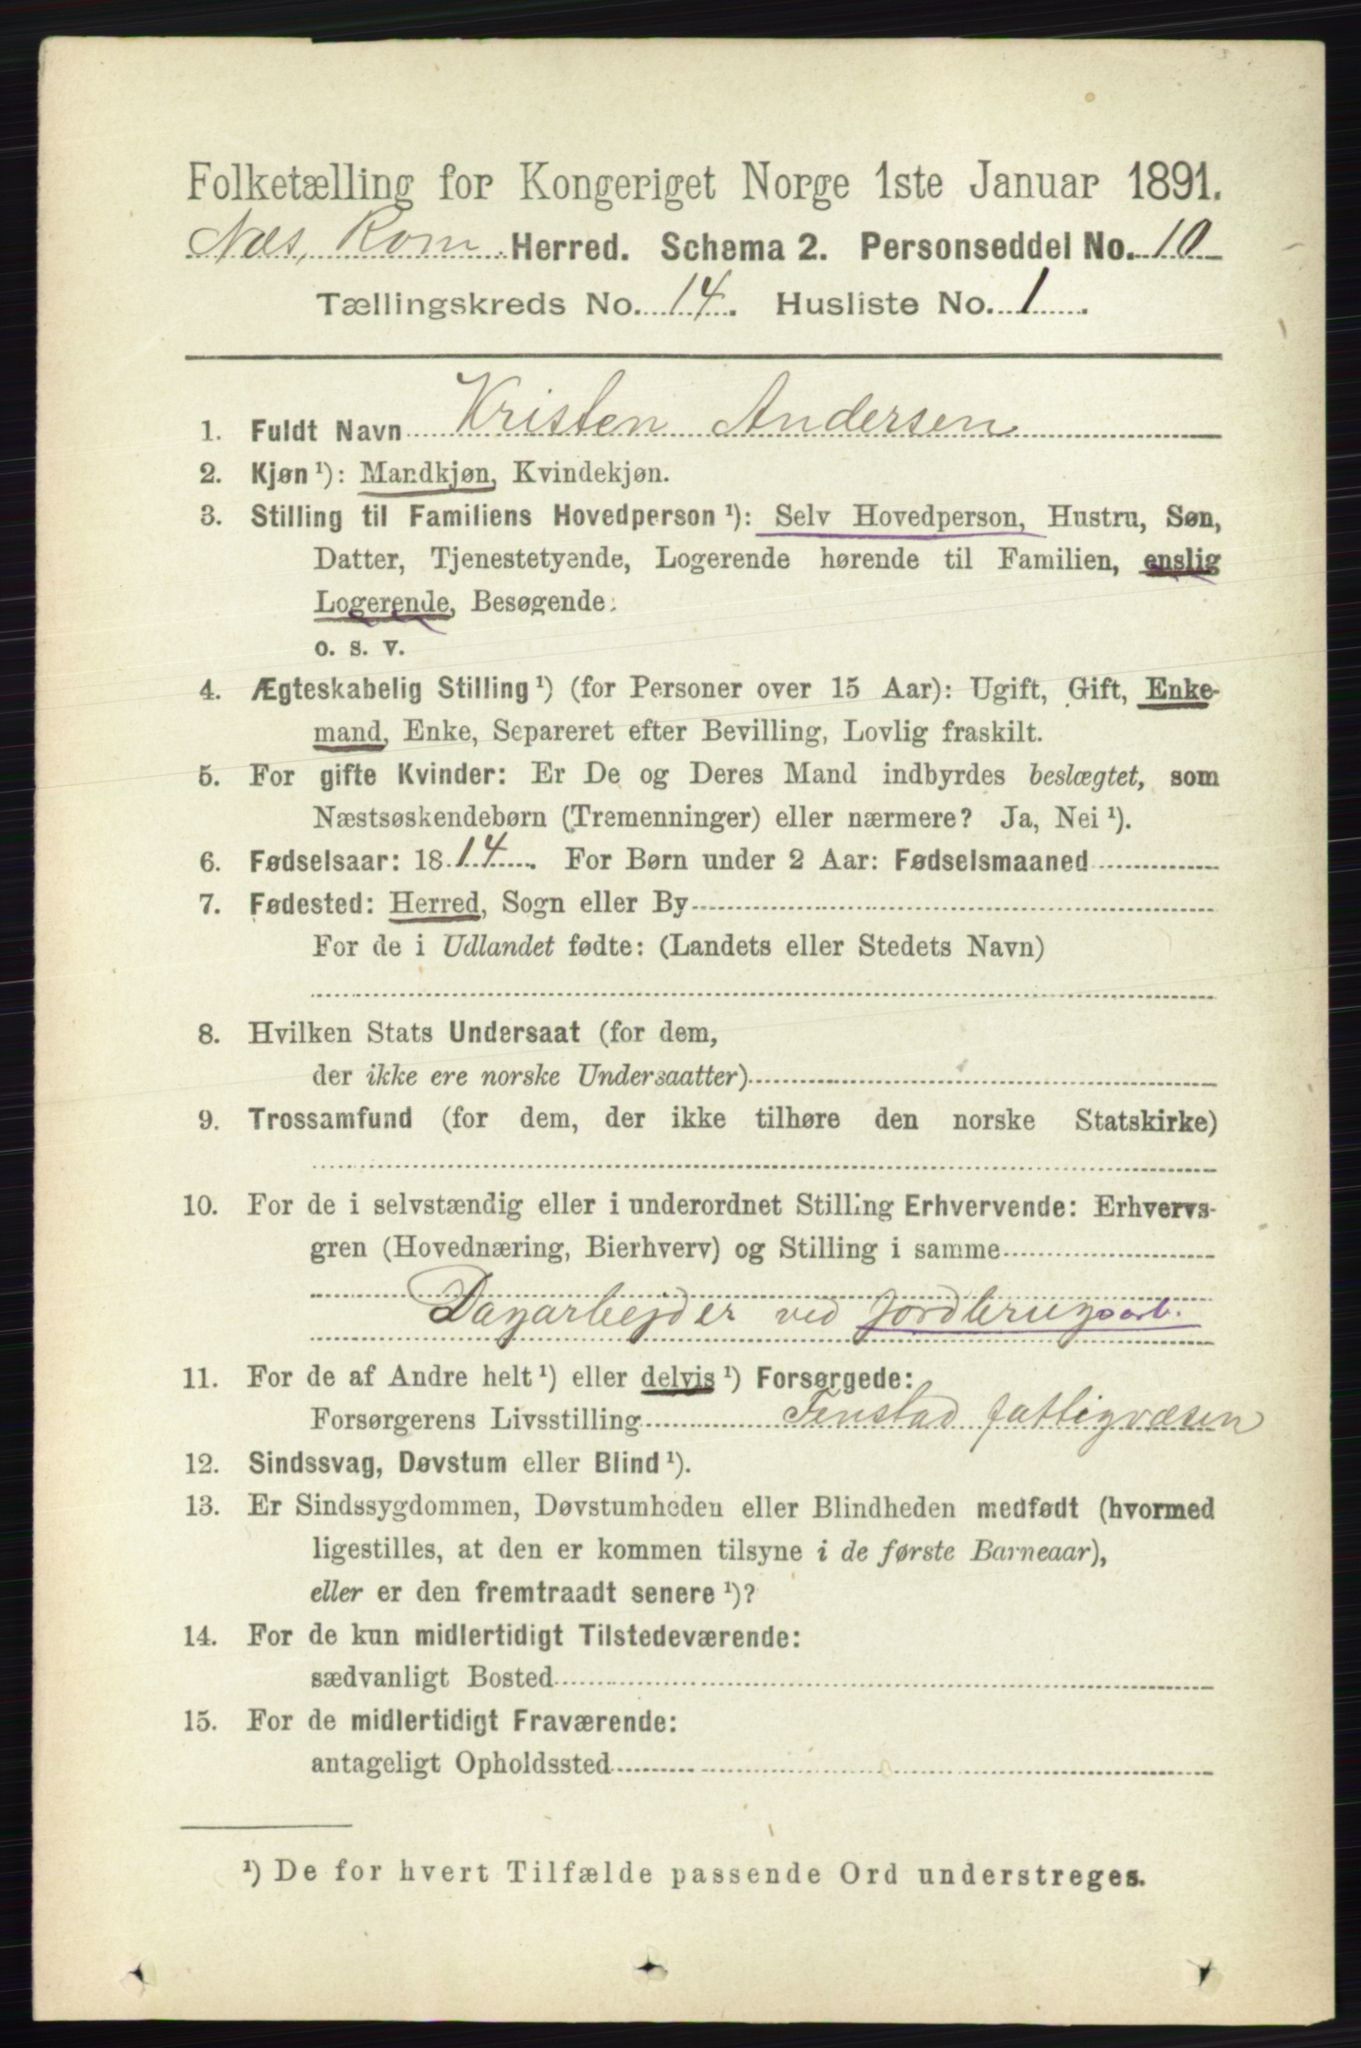 Folketælling for Kongeriget Norge 1ste Januar 1891.
Næs, Rom. Herred. Schema 2. Personseddel No. 10
Tællingskreds No. 14. Husliste No. 1.
1. Fuldt Navn Kristen Andersen
2. Kjøn ¹): Mandkjøn, Kvindekjøn.
3. Stilling til Familiens Hovedperson ¹): Selv Hovedperson, Hustru, Søn,
Datter, Tjenestetyende, Logerende hørende til Familien, enslig
Logerende, Besøgende
o. s. v.
4. Ægteskabelig Stilling ¹) (for Personer over 15 Aar): Ugift, Gift, Enke-
mand, Enke, Separeret efter Bevilling, Lovlig fraskilt.
5. For gifte Kvinder: Er De og Deres Mand indbyrdes beslægtet, som
Næstsøskendebørn (Tremenninger) eller nærmere? Ja, Nei ¹).
6. Fødselsaar: 1814. For Børn under 2 Aar: Fødselsmaaned
7. Fødested: Herred, Sogn eller By
For de i Udlandet fødte: (Landets eller Stedets Navn)
8. Hvilken Stats Undersaat (for dem,
der ikke ere norske Undersaatter)
9. Trossamfund (for dem, der ikke tilhøre den norske Statskirke)
10. For de i selvstændig eller i underordnet Stilling Erhvervende: Erhvervs-
gren (Hovednæring, Bierhverv) og Stilling i samme
Dagarbejder ved Jordbrugsarb.
11. For de af Andre helt ¹) eller delvis ¹) Forsørgede:
Forsørgerens Livsstilling Fenstad fattigvæsen
12. Sindssvag, Døvstum eller Blind ¹).
13. Er Sindssygdommen, Døvstumheden eller Blindheden medfødt (hvormed
ligestilles, at den er kommen tilsyne i de første Barneaar),
eller er den fremtraadt senere ¹)?
14. For de kun midlertidigt Tilstedeværende:
sædvanligt Bosted
15. For de midlertidigt Fraværende:
antageligt Opholdssted
¹) De for hvert Tilfælde passende Ord understreges.